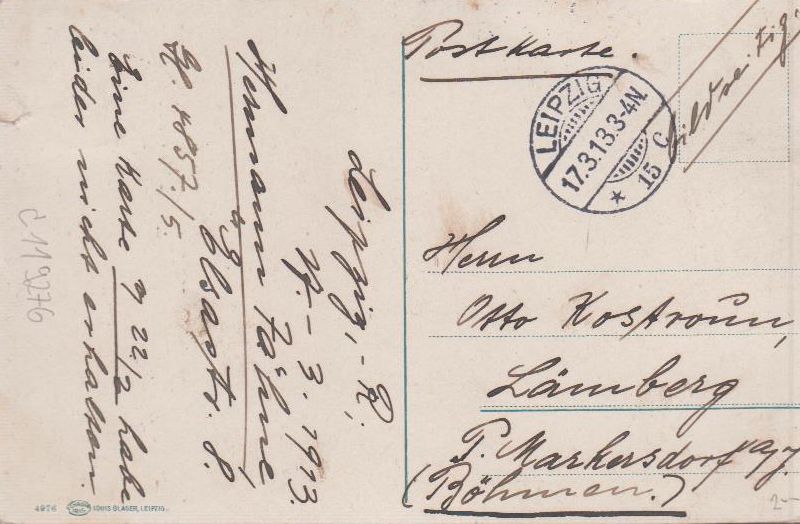 Postkarte.
bildseitig.
LEIPZIG
17.3.13.3-4N.
* 15 C
Herrn
Otto Kostroun,
Lämberg
P. Markersdorf
(Böhmen.)
Leipzig,-R,
17.-3.1913.
Hermann Fähne,
Elsastr. 8.
4857./5.
Eine Karte v 22/2 habe
leider nicht erhalten.
c119276
4976 LOUIS GLASER, LEIPZIG.
2-